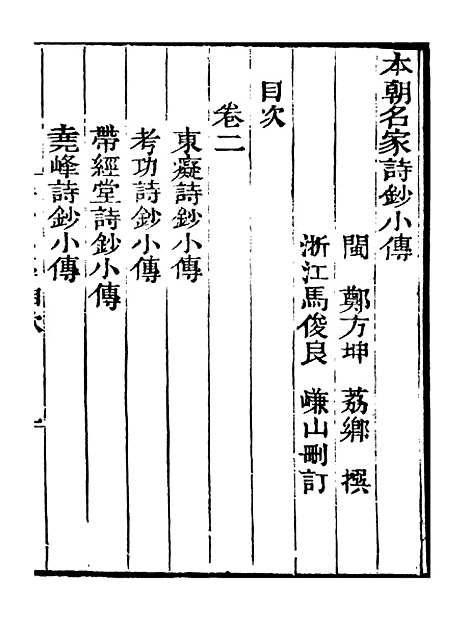 本朝名家詩鈔小傳
閩 鄭方坤 荔鄉 撰
浙江馬俊良 嵰山刪訂
目次
卷二
東癡詩鈔小傳
考功詩鈔小傳
帶經堂詩鈔小傳
堯峰詩鈔小傳